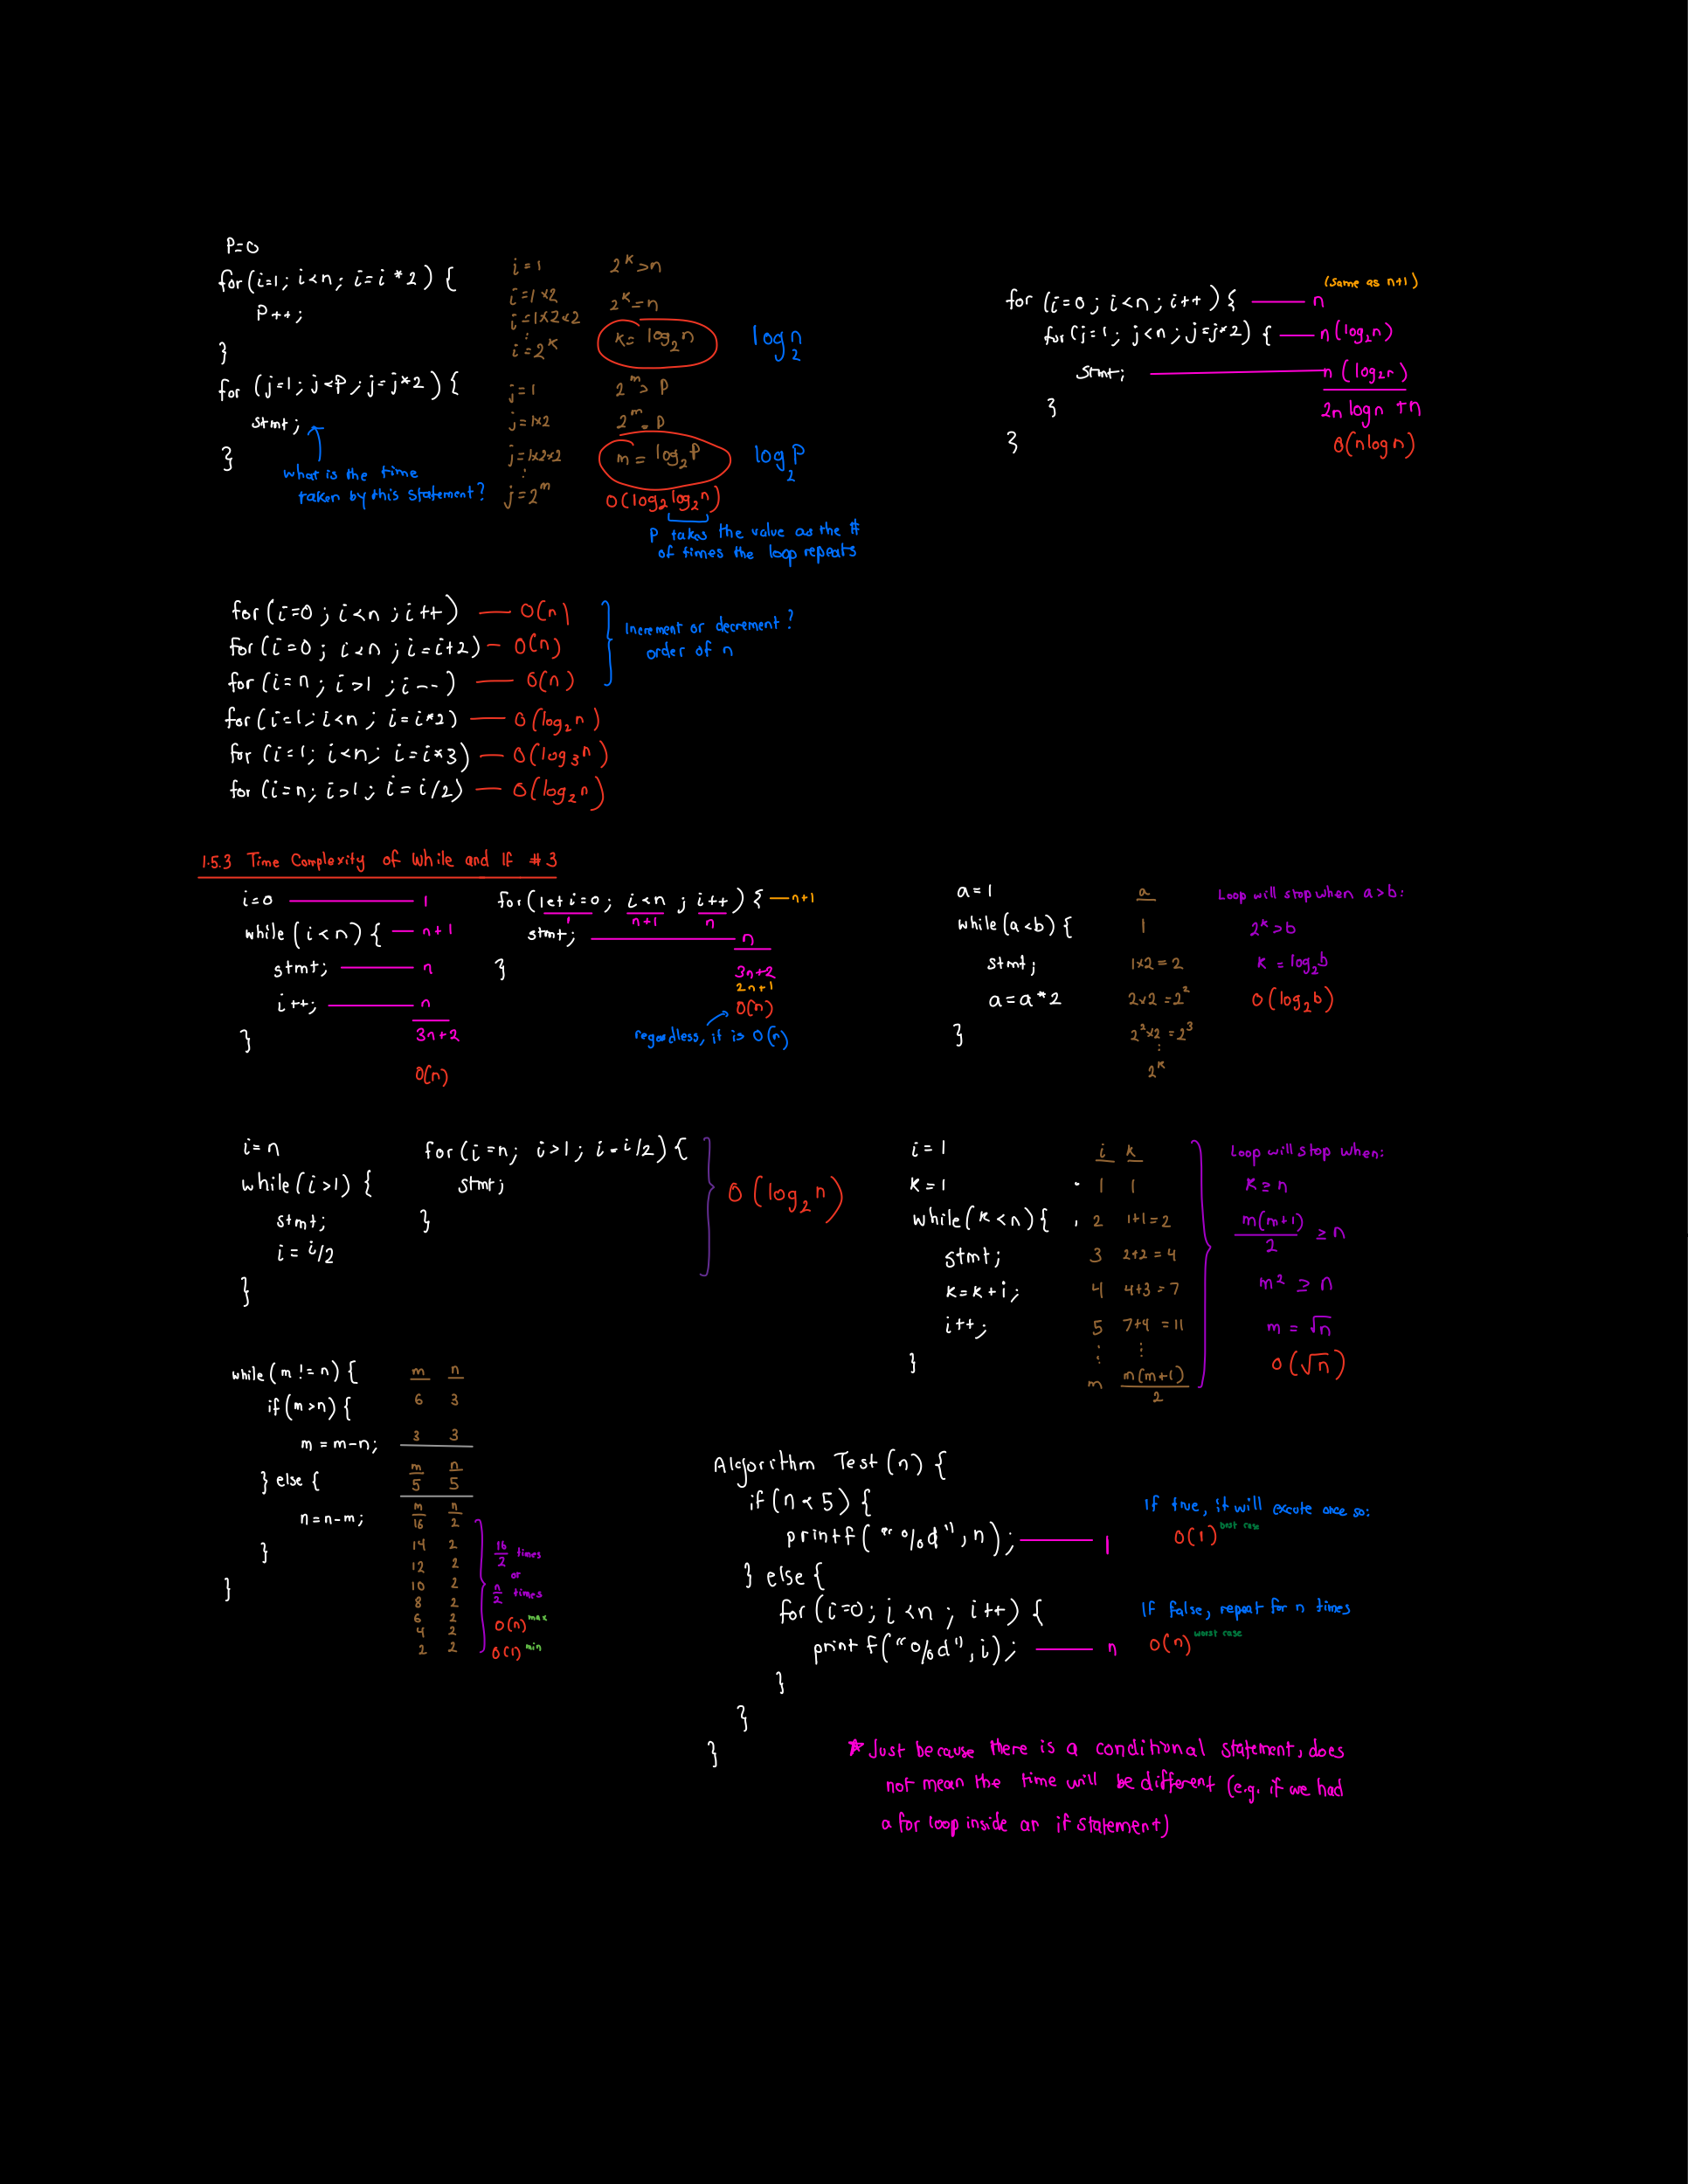 P=0
for (i=1; i<n; i=i*2) {
P++;
}
for (j=1; j<P; j=j*2) {
stmt;
}
what is the time
taken by this statement?
i=1
i=1×2
i=1×2×2
⋮
i=2^k
2^k>n
2^k=n
k=log₂n
log₂n
j=1
j=1×2
j=1×2×2
⋮
j=2^m
2^m> P
2^m=P
m=log₂P
log₂P
O(log₂log₂n)
P takes the value as the #
of times the loop repeats
(same as n+1)
for (i=0; i<n; i++) { — n
for (j=1; j<n; j=j*2) { — n(log₂n)
stmt; — n(log₂n)
}
}
2n logn +n
O(nlogn)
for (i=0; i<n; i++) — O(n)
for (i=0; i<n; i=i+2) — O(n)
for (i=n; i>1; i--) — O(n)
Increment or decrement?
order of n
for (i=1; i<n; i=i*2) — O(log₂n)
for (i=1; i<n; i=i*3) — O(log₃n)
for (i=n; i>1; i=i/2) — O(log₂n)
1.5.3 Time Complexity of While and If #3
i=0 — 1
while (i<n) { — n+1
stmt; — n
i++; — n
}
3n+2
O(n)
for (let i=0; i<n; i++) { — n+1
1 n+1 n
stmt; — n
}
3n+2
2n+1
O(n)
regardless, it is O(n)
a=1
while (a<b) {
stmt;
a=a*2
}
a
1
1×2=2
2×2=2²
2²×2=2³
⋮
2^k
Loop will stop when a>b:
2^k>b
k=log₂b
O(log₂b)
i=n
while (i>1) {
stmt;
i=i/2
}
for (i=n; i>1; i=i/2) {
stmt;
}
O(log₂n)
i=1
k=1
while (k<n) {
stmt;
k=k+i;
i++;
}
i k
1 1
2 1+1=2
3 2+2=4
4 4+3=7
5 7+4=11
⋮ ⋮
m m(m+1)/2
Loop will stop when:
k≥n
m(m+1)/2 ≥n
m² ≥ n
m = √n
O(√n)
while (m != n) {
if (m>n) {
m=m-n;
} else {
n=n-m;
}
}
m n
6 3
3 3
m n
5 5
m n
16 2
14 2
12 2
10 2
8 2
6 2
4 2
2 2
16/2 times
or
n/2 times
O(n) max
O(1) min
Algorithm Test (n) {
if (n<5) {
printf("%d", n); — 1
} else {
for (i=0; i<n; i++) {
printf("%d", i); — n
}
}
}
If true, it will excute once so:
O(1) best case
If false, repeat for n times
O(n) worst case
* Just because there is a conditional statement, does
not mean the time will be different (e.g. if we had
a for loop inside an if statement)